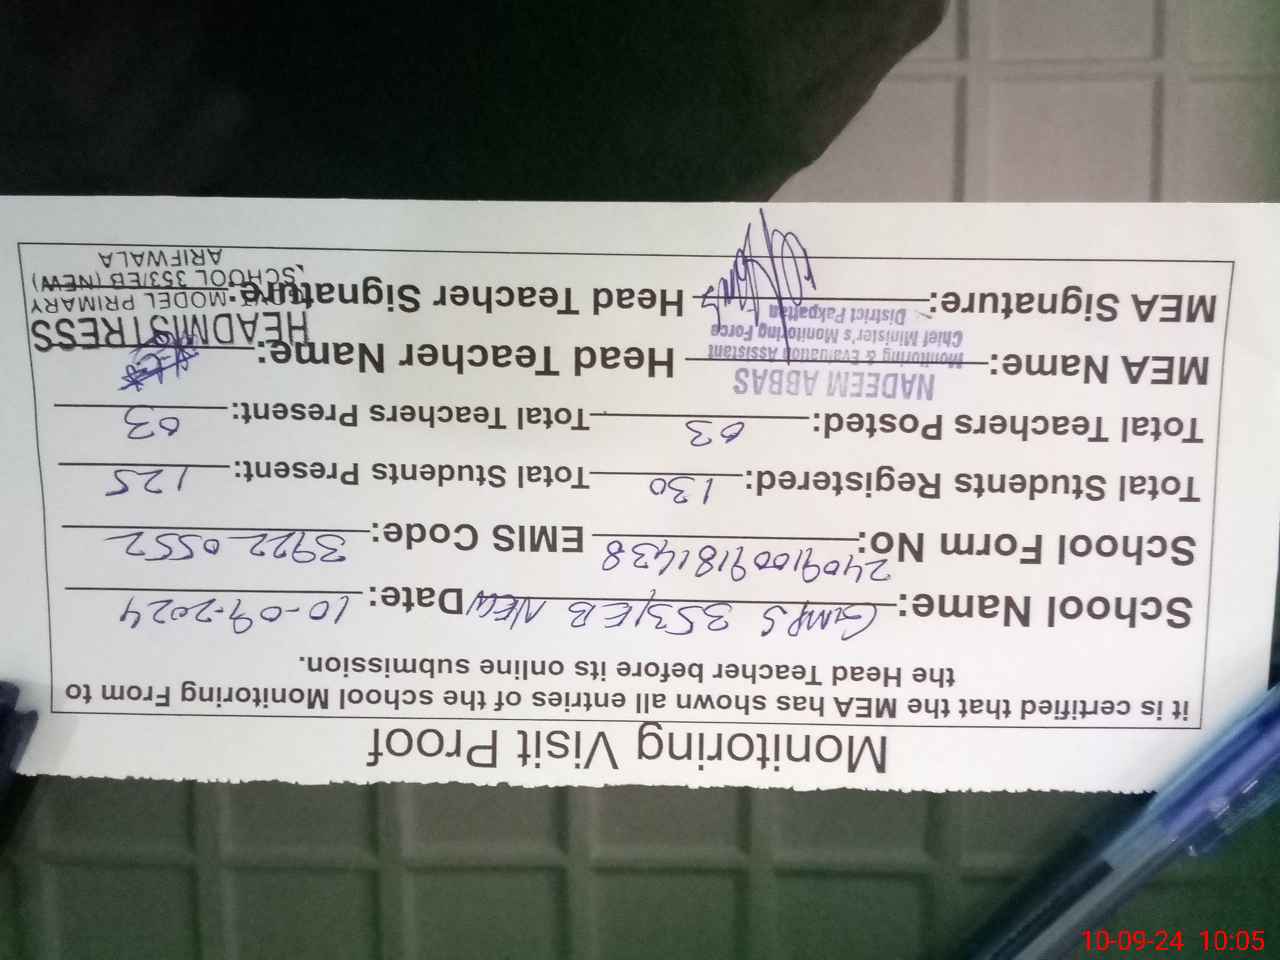 Monitoring Visit Proof
it is certified that the MEA has shown all entries of the school Monitoring From to
the Head Teacher before its online submission.
School Name: GMPS 353/EB NEW Date: 10-09-2024
School Form No: 24091009181438 EMIS Code: 39220552
Total Students Registered: 130 Total Students Present: 125
Total Teachers Posted: 03 Total Teachers Present: 03
NADEEM ABBAS
Monitoring & Evaluation Assistant
Chief Minister's Monitoring Force
District Pakpattan
MEA Name: Head Teacher Name:
MEA Signature: Head Teacher Signature:
HEADMISTRESS
GOVT MODEL PRIMARY
SCHOOL 353/EB (NEW)
ARIFWALA
10-09-24 10:05